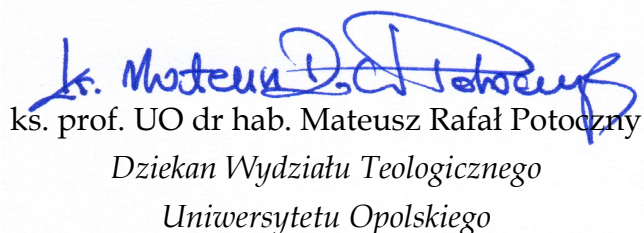 ks. Mateusz Potoczny
ks. prof. UO dr hab. Mateusz Rafał Potoczny
Dziekan Wydziału Teologicznego
Uniwersytetu Opolskiego